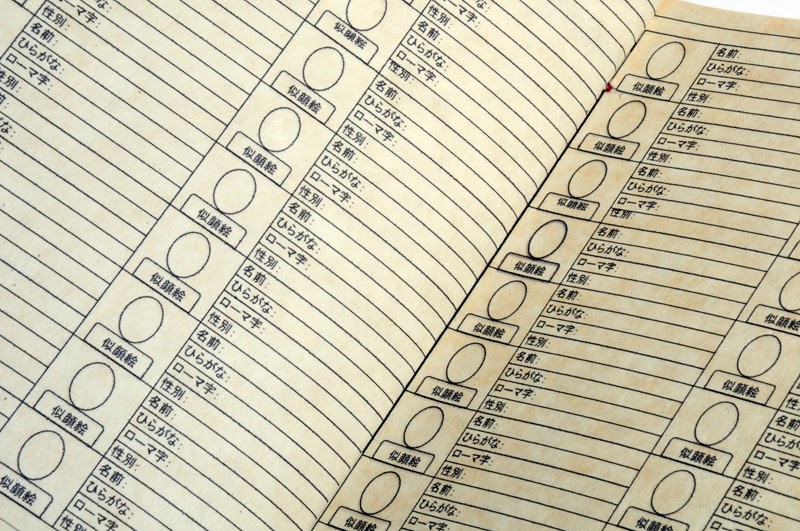 性別:
名前:
ひらがな:
ローマ字:
性別:
性別:
似顔絵
名前:
ひらがな:
ローマ字:
性別:
似顔絵
名前:
ひらがな:
ローマ字:
性別:
似顔絵
名前:
ひらがな:
ローマ字:
性別:
似顔絵
名前:
ひらがな:
ローマ字:
性別:
似顔絵
名前:
ひらがな:
ローマ字:
性別:
似顔絵
名前:
ひらがな:
ローマ字:
性別:
似顔絵
名前:
ひらがな:
ローマ字:
性別:
似顔絵
名前:
ひらがな:
ローマ字:
名前:
ひらがな:
ローマ字:
性別:
似顔絵
名前:
ひらがな:
ローマ字:
性別:
似顔絵
名前:
ひらがな:
ローマ字:
性別:
似顔絵
名前:
ひらがな:
ローマ字:
性別:
似顔絵
名前:
ひらがな:
ローマ字:
性別:
似顔絵
名前:
ひらがな:
ローマ字:
性別:
似顔絵
名前:
ひらがな:
ローマ字:
性別:
似顔絵
名前:
ひらがな:
ローマ字:
性別:
似顔絵
名前:
ひらがな:
ローマ字:
似顔絵
似顔絵
性別:
名前:
似顔絵
性別:
名前:
ひらがな:
似顔絵